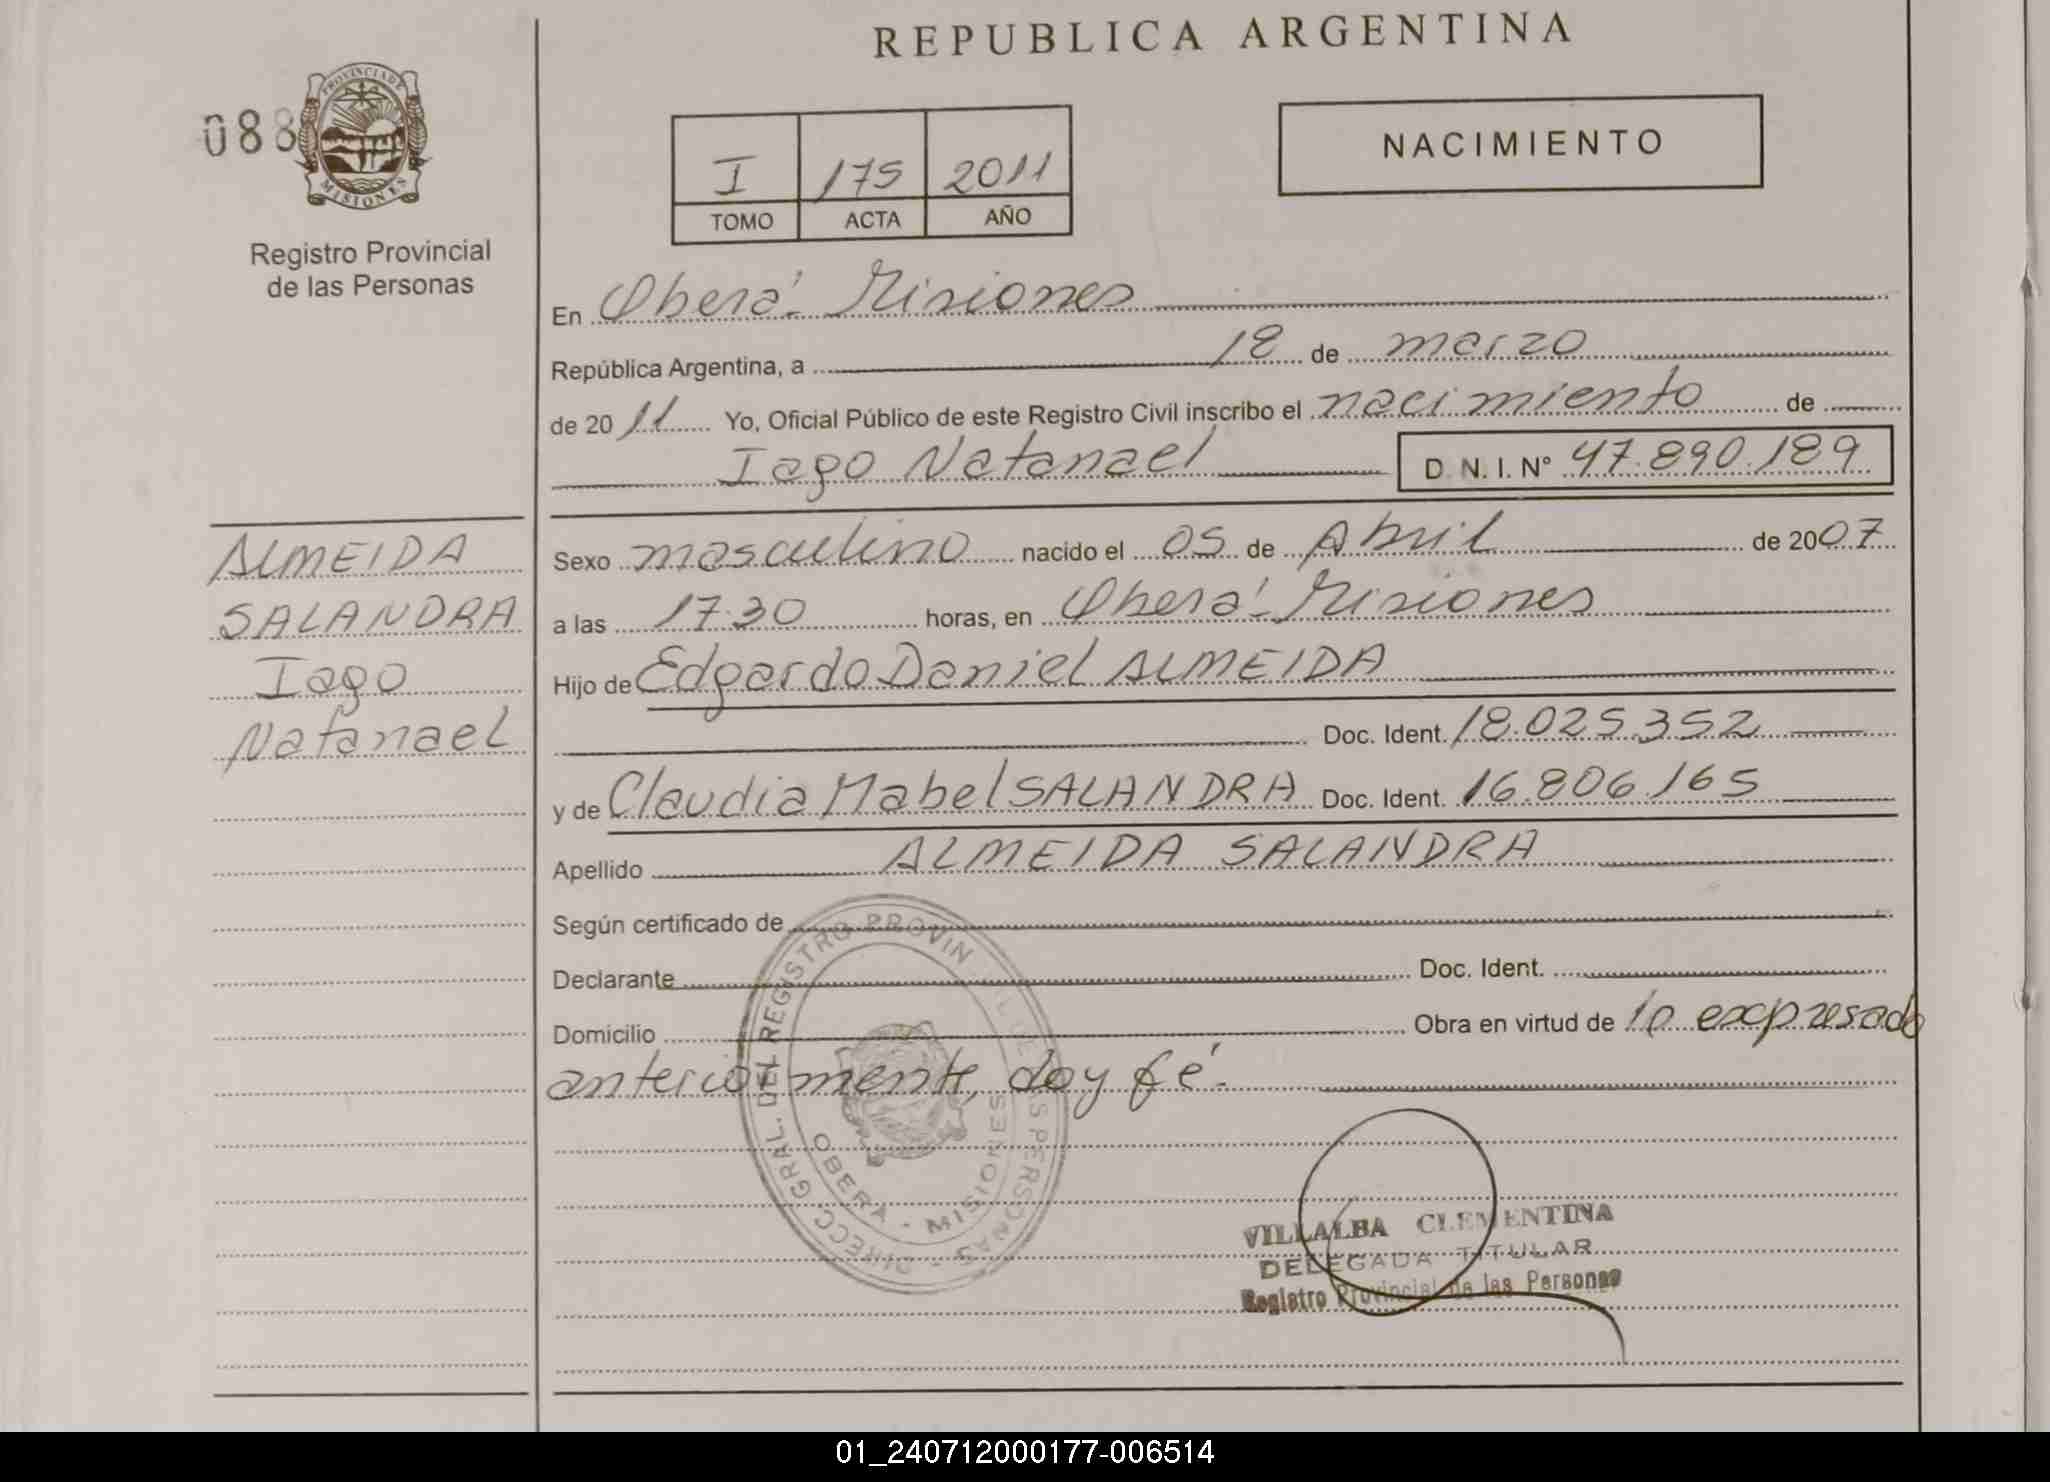 REPUBLICA ARGENTINA
088
PROVINCIA DE
MISIONES
Registro Provincial
de las Personas
I 175 2011
TOMO ACTA AÑO
NACIMIENTO
En Oberá - Misiones
República Argentina, a 18 de marzo
de 2011 Yo, Oficial Público de este Registro Civil inscribo el nacimiento de
Iago Natanael D.N.I. Nº 47.890.189
ALMEIDA
SALANDRA
Iago
Natanael
Sexo masculino nacido el 05 de Abril de 2007
a las 17.30 horas, en Oberá - Misiones
Hijo de Edgardo Daniel ALMEIDA
Doc. Ident. 18.025.352
y de Claudia Mabel SALANDRA Doc. Ident. 16.806.165
Apellido ALMEIDA SALANDRA
Según certificado de
Declarante Doc. Ident.
Domicilio Obra en virtud de lo expresado
anteriormente, doy fé.
DIRECC. GRAL. DEL REGISTRO PROVIN L DE S PERSONAS
OBERA - MISIONES
VILLALBA CLEMENTINA
DELEGADA TITULAR
Registro Provincial de las Personas
01_240712000177-006514